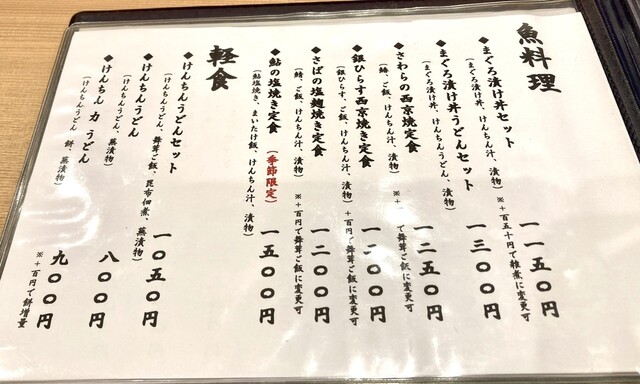 魚料理
◆まぐろ漬け丼セット 一一五〇円
(まぐろ漬け丼、けんちん汁、漬物) ※+百五十円で雑煮に変更可
◆まぐろ漬け丼うどんセット 一三〇〇円
(まぐろ漬け丼、けんちんうどん、漬物)
◆さわらの西京焼定食 一二五〇円
(鰆、ご飯、けんちん汁、漬物) ※+ で舞茸ご飯に変更可
◆銀ひらす西京焼き定食 一二〇〇円
(銀ひらす、ご飯、けんちん汁、漬物) +百円で舞茸ご飯に変更可
◆さばの塩麹焼き定食 一二〇〇円
(鯖、ご飯、けんちん汁、漬物) ※+百円で舞茸ご飯に変更可
◆鮎の塩焼き定食(季節限定) 一五〇〇円
(鮎塩焼き、まいたけ飯、けんちん汁、漬物)
軽食
◆けんちんうどんセット 一〇五〇円
(けんちんうどん、舞茸ご飯、昆布佃煮、蒸漬物)
◆けんちんうどん 八〇〇円
(けんちんうどん、蒸漬物)
◆けんちん力うどん 九〇〇円
(けんちんうどん 餅、蒸漬物) ※+百円で餅増量